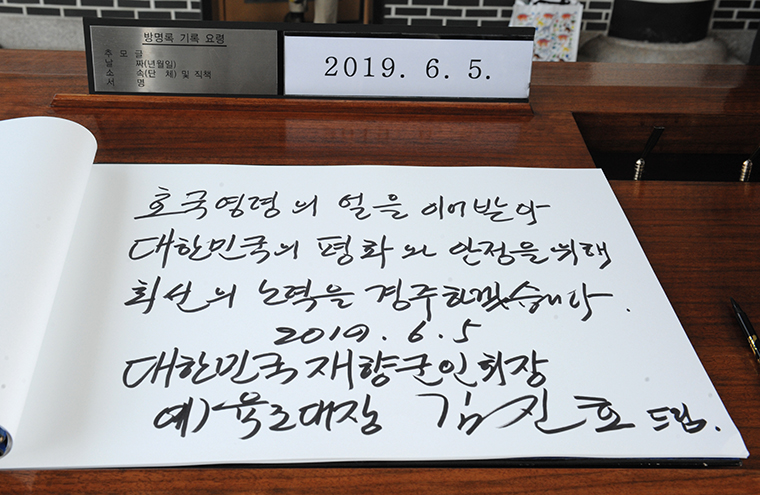 방명록 기록 요령
추 모 글
날 짜(년월일)
소 속(단 체) 및 직책
서 명
2019. 6. 5.
호국영령의 얼을 이어받아
대한민국의 평화와 안정을 위해
최선의 노력을 경주하겠습니다.
2019. 6. 5
대한민국 재향군인회장
예)육군대장 김진호 드림.